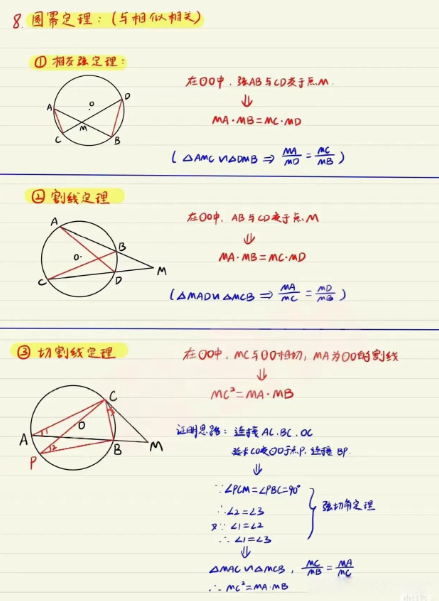 8. 圆幂定理：(与相似相关)
① 相交弦定理：
A
O
D
M
C
B
在⊙O中，弦AB与CD交于点M.
⇓
MA·MB=MC·MD
(△AMC∽△DMB ⇒ MA/MD = MC/MB)
② 割线定理
A
B
O·
C
D
M
在⊙O中，AB与CD交于点M
⇓
MA·MB=MC·MD
(△MAD∽△MCB ⇒ MA/MC = MD/MB)
③ 切割线定理
C
3
A
1
O
P
2
B
M
在⊙O中，MC与⊙O相切，MA为⊙O的割线
⇓
MC²=MA·MB
证明思路：连接AC.BC.OC
延长CO交⊙O于点P.连接BP.
⇓
∵∠PCM=∠PBC=90°
∴∠2=∠3
又∵∠1=∠2
∴∠1=∠3
弦切角定理
⇓
△MAC∽△MCB，MC/MB = MA/MC
∴MC²=MA·MB